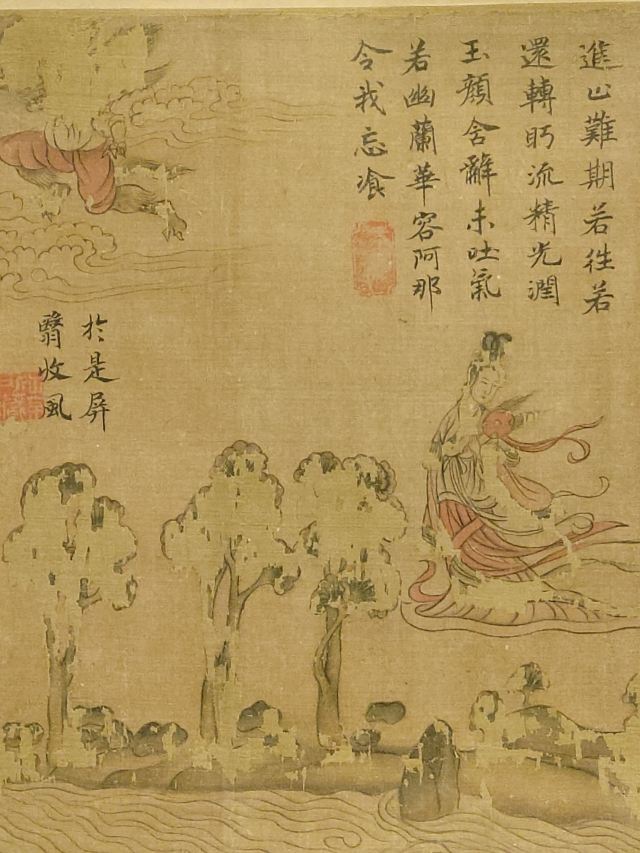 進止難期若往若
還轉眄流精光潤
玉顏含辭未吐氣
若幽蘭華容阿那
令我忘湌
於是屏
翳收風